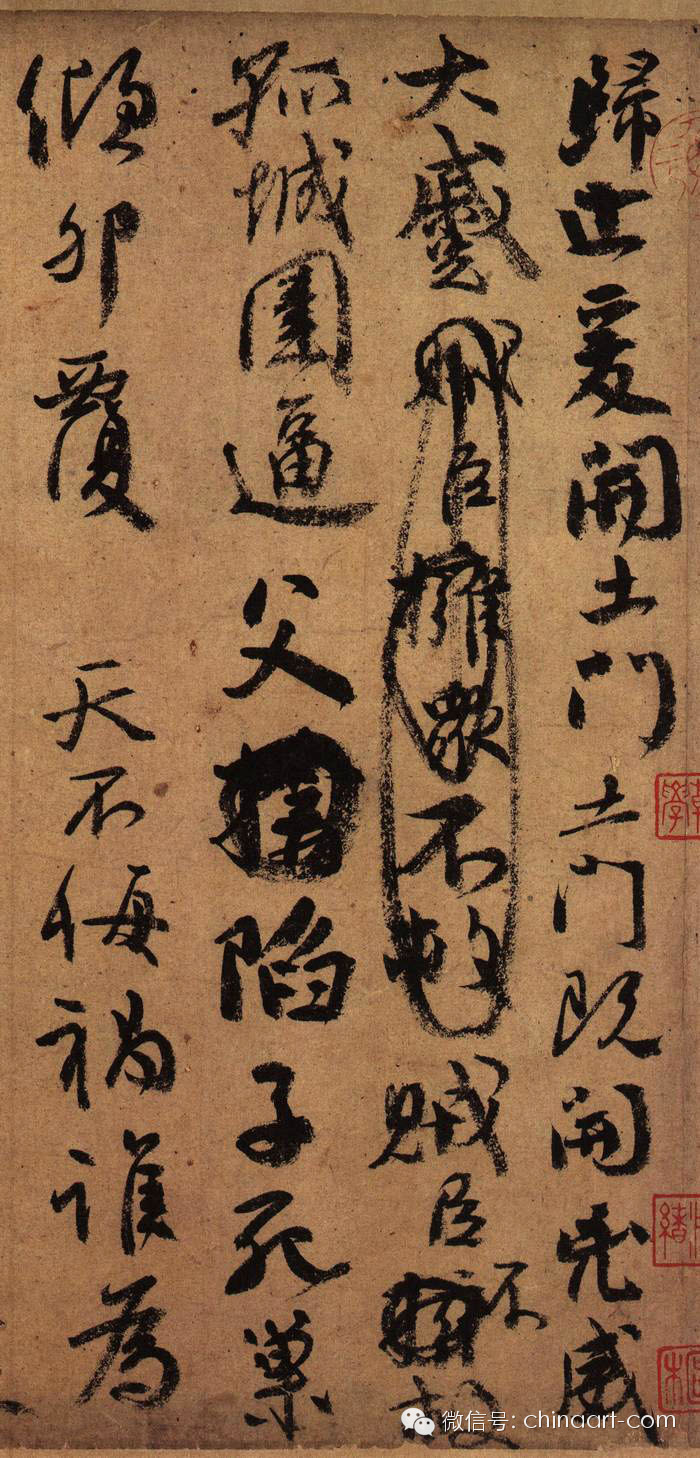 歸止爰開土門土門既開兇威
大蹙賊臣擁衆不救賊臣不救
孤城圍逼父陷子死巢
傾卵覆 天不悔禍誰為
微信号: chinaart-com